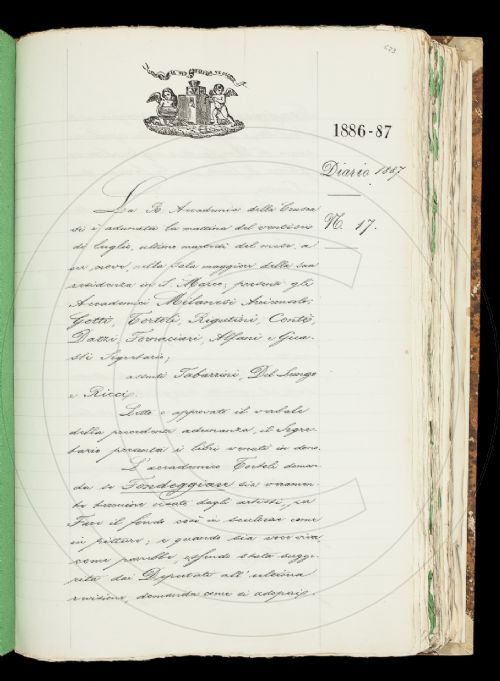 673
1886-87
Diario 1887
N. 17.
La R. Accademia della Crusca
si è adunata la mattina del ventisei
di luglio, ultimo martedì del mese, a
ore nove, nella Sala maggiore della sua
residenza in S. Marco; presenti gli
Accademici Milanesi Arciconsolo;
Gotti, Tortoli, Rigutini, Conti,
Dazzi, Fornaciari, Alfani e Gua-
sti Segretario;
assenti Tabarrini, Del Lungo
e Ricci.
Letto e approvato il verbale
della precedente adunanza, il Segre-
tario presenta i libri venuti in dono.
L'accademico Tortoli doman-
da se Fondeggiare sia veramen-
te termine usato dagli artisti, per
Fare il fondo così in scultura come
in pittura; e quando sia voce viva
come parrebbe, essendo stata sugge-
rita dai Deputati all'ultima
revisione, domanda come si adopri.